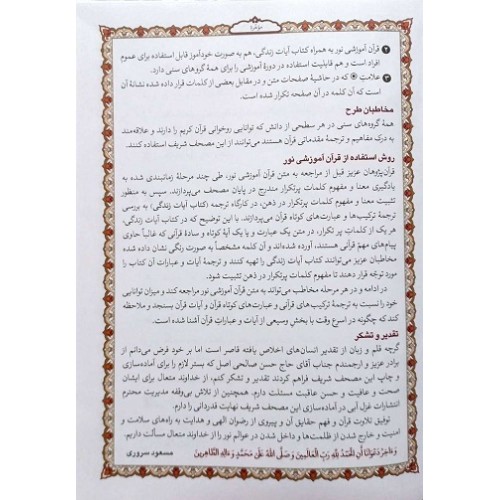 مؤخره
۲ قرآن آموزشی نور به همراه کتاب آیات زندگی، هم به صورت خودآموز قابل استفاده برای عموم
افراد است و هم قابلیت استفاده در دورهٔ آموزشی را برای همهٔ گروهای سنی دارد.
۳ علامت که در حاشیهٔ صفحات متن و در مقابل بعضی از کلمات قرار داده شده نشانهٔ آن
است که آن کلمه در آن صفحه تکرار شده است.
مخاطبان طرح
همهٔ گروه‌های سنی در هر سطحی از دانش که توانایی روخوانی قرآن کریم را دارند و علاقه‌مند
به درک مفاهیم و ترجمهٔ مقدماتی قرآن هستند می‌توانند از این مصحف شریف استفاده کنند.
روش استفاده از قرآن آموزشی نور
قرآن‌پژوهان عزیز قبل از مراجعه به متن قرآن آموزشی نور، طی چند مرحلهٔ زمانبندی شده به
یادگیری معنا و مفهوم کلمات پرتکرار مندرج در پایان مصحف می‌پردازند. سپس به منظور
تثبیت معنا و مفهوم کلمات پرتکرار در ذهن، در کارگاه ترجمه (کتاب آیات زندگی) به بررسی
ترجمهٔ ترکیب‌ها و عبارت‌های کوتاه قرآن می‌پردازند. با این توضیح که در کتاب آیات زندگی،
هر یک از کلمات پر تکرار، در متن یک عبارت و یا یک آیهٔ کوتاه و سادهٔ قرآنی که غالباً حاوی
پیام‌های مهمّ قرآنی هستند، آورده شده‌اند و آن کلمه مشخصاً به صورت رنگی نشان داده شده
مخاطبان عزیز می‌توانند کتاب آیات زندگی را تهیه کنند و ترجمهٔ آیات و عبارات آن کتاب را
مورد توجّه قرار دهند تا مفهوم کلمات پرتکرار در ذهن تثبیت شود.
در ادامه و در هر مرحله مخاطب می‌تواند به متن قرآن آموزشی نور مراجعه کند و میزان توانایی
خود را نسبت به ترجمهٔ ترکیب‌های قرآنی و عبارت‌های کوتاه قرآن و آیات قرآن بسنجد و ملاحظه
کند که چگونه در اسرع وقت با بخش وسیعی از آیات و عبارات قرآن آشنا شده است.
تقدیر و تشکر
گرچه قلم و زبان از تقدیر انسان‌های اخلاص یافته قاصر است اما بر خود فرض می‌دانم از
برادر عزیز و ارجمندم جناب آقای حاج حسن صالحی اصل که بستر لازم را برای آماده‌سازی
و چاپ این مصحف شریف فراهم کردند تقدیر و تشکر کنم، از خداوند متعال برای ایشان
صحت و عافیت و حسن عاقبت مسئلت دارم. همچنین از تلاش بی‌وقفه مدیریت محترم
انتشارات غزل آبی در آماده‌سازی این مصحف شریف نهایت قدردانی را دارم.
توفیق تلاوت قرآن و فهم حقایق آن و پیروی از رضوان الهی و هدایت به راه‌های سلامت و
امنیت و خارج شدن از ظلمت‌ها و داخل شدن در عوالم نور را از خداوند متعال مسألت داریم.
وَ ءَاخِرُ دَعْوَانَا أَنِ الْحَمْدُ لِلَّهِ رَبِّ الْعَالَمِينَ وَ صَلَّى اللَّهُ عَلَى مُحَمَّدٍ وَ ءَالِهِ الطَّاهِرِينَ مسعود سروری